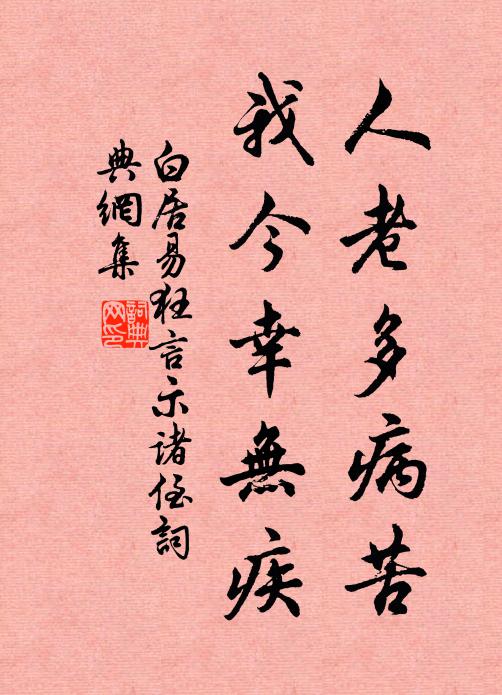 人老多病苦
我今幸無疾
白居易狂言示诸侄詞
典網集
詞典
网印